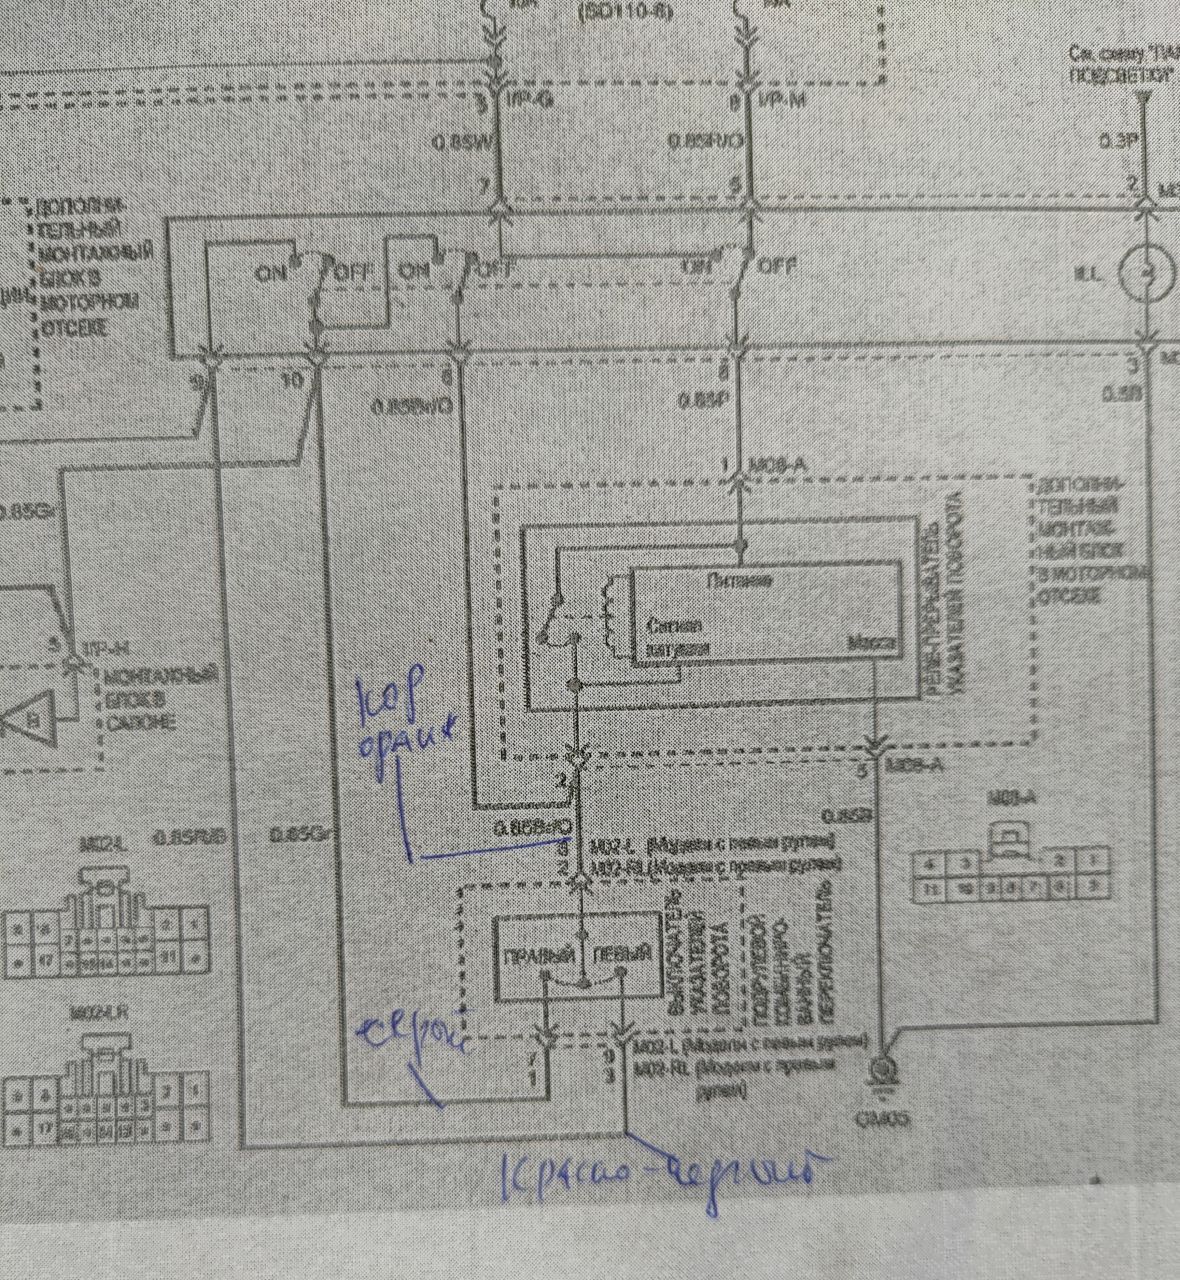 (SD110-6)
См. схему "ПА
ПОДСВЕТКИ"
5
I/P-G
8
I/P-M
0.85W
0.85R/O
0.3P
7
5
2
ДОПОЛНИ-
ТЕЛЬНЫЙ
МОНТАЖНЫЙ
БЛОК В
МОТОРНОМ
ОТСЕКЕ
ON
OFF
ON
OFF
ON
OFF
ILL.
9
10
6
8
3
0.85Br/O
0.85P
0.5B
1
M08-A
0.85Gr
РЕЛЕ-ПРЕРЫВАТЕЛЬ
УКАЗАТЕЛЕЙ ПОВОРОТА
ДОПОЛНИ-
ТЕЛЬНЫЙ
МОНТАЖ-
НЫЙ БЛОК
В МОТОРНОМ
ОТСЕКЕ
Питание
Сигнал
катушки
Масса
5
I/P-H
МОНТАЖНЫЙ
БЛОК В
САЛОНЕ
B
Кор
оранж
2
5
M08-A
M08-A
0.85R/B
0.85Gr
0.85Br/O
0.85B
M02-L
8
M02-L (Модели с левым рулем)
2
M02-RL (Модели с правым рулем)
4
3
2
1
ПРАВЫЙ
ЛЕВЫЙ
ВЫКЛЮЧАТЕЛЬ
УКАЗАТЕЛЕЙ
ПОВОРОТА
ПОДРУЛЕВОЙ
КОМБИНИРО-
ВАННЫЙ
ПЕРЕКЛЮЧАТЕЛЬ
M02-LR
серый
7
9
M02-L (Модели с левым рулем)
1
3
M02-RL (Модели с правым
рулем)
GM05
Красно-черный